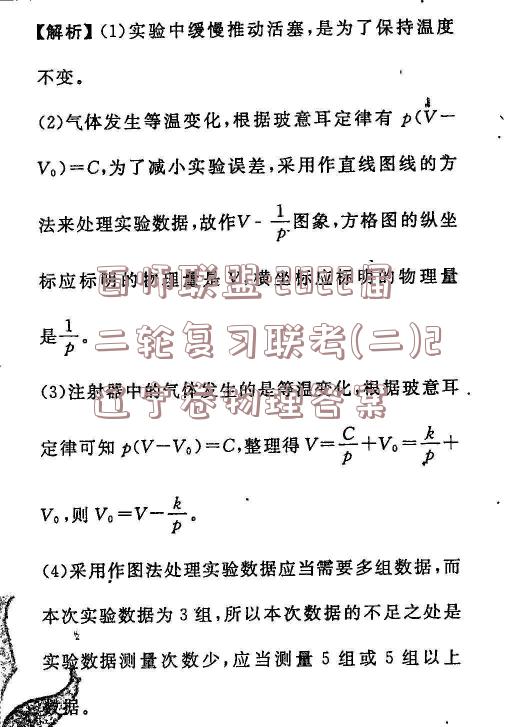 【解析】(1)实验中缓慢推动活塞,是为了保持温度
不变。
(2)气体发生等温变化,根据玻意耳定律有 p(V－
V₀)＝C,为了减小实验误差,采用作直线图线的方
法来处理实验数据,故作V - 1/p 图象,方格图的纵坐
标应标明的物理量是 V,横坐标应标明的物理量
是 1/p 。
百师联盟·2022届
二轮复习联考(二)2
辽宁卷物理答案
(3)注射器中的气体发生的是等温变化,根据玻意耳
定律可知 p(V－V₀)＝C,整理得 V＝C/p＋V₀＝k/p＋
V₀,则 V₀＝V－k/p。
(4)采用作图法处理实验数据应当需要多组数据,而
本次实验数据为 3 组,所以本次数据的不足之处是
实验数据测量次数少,应当测量 5 组或 5 组以上
数据。